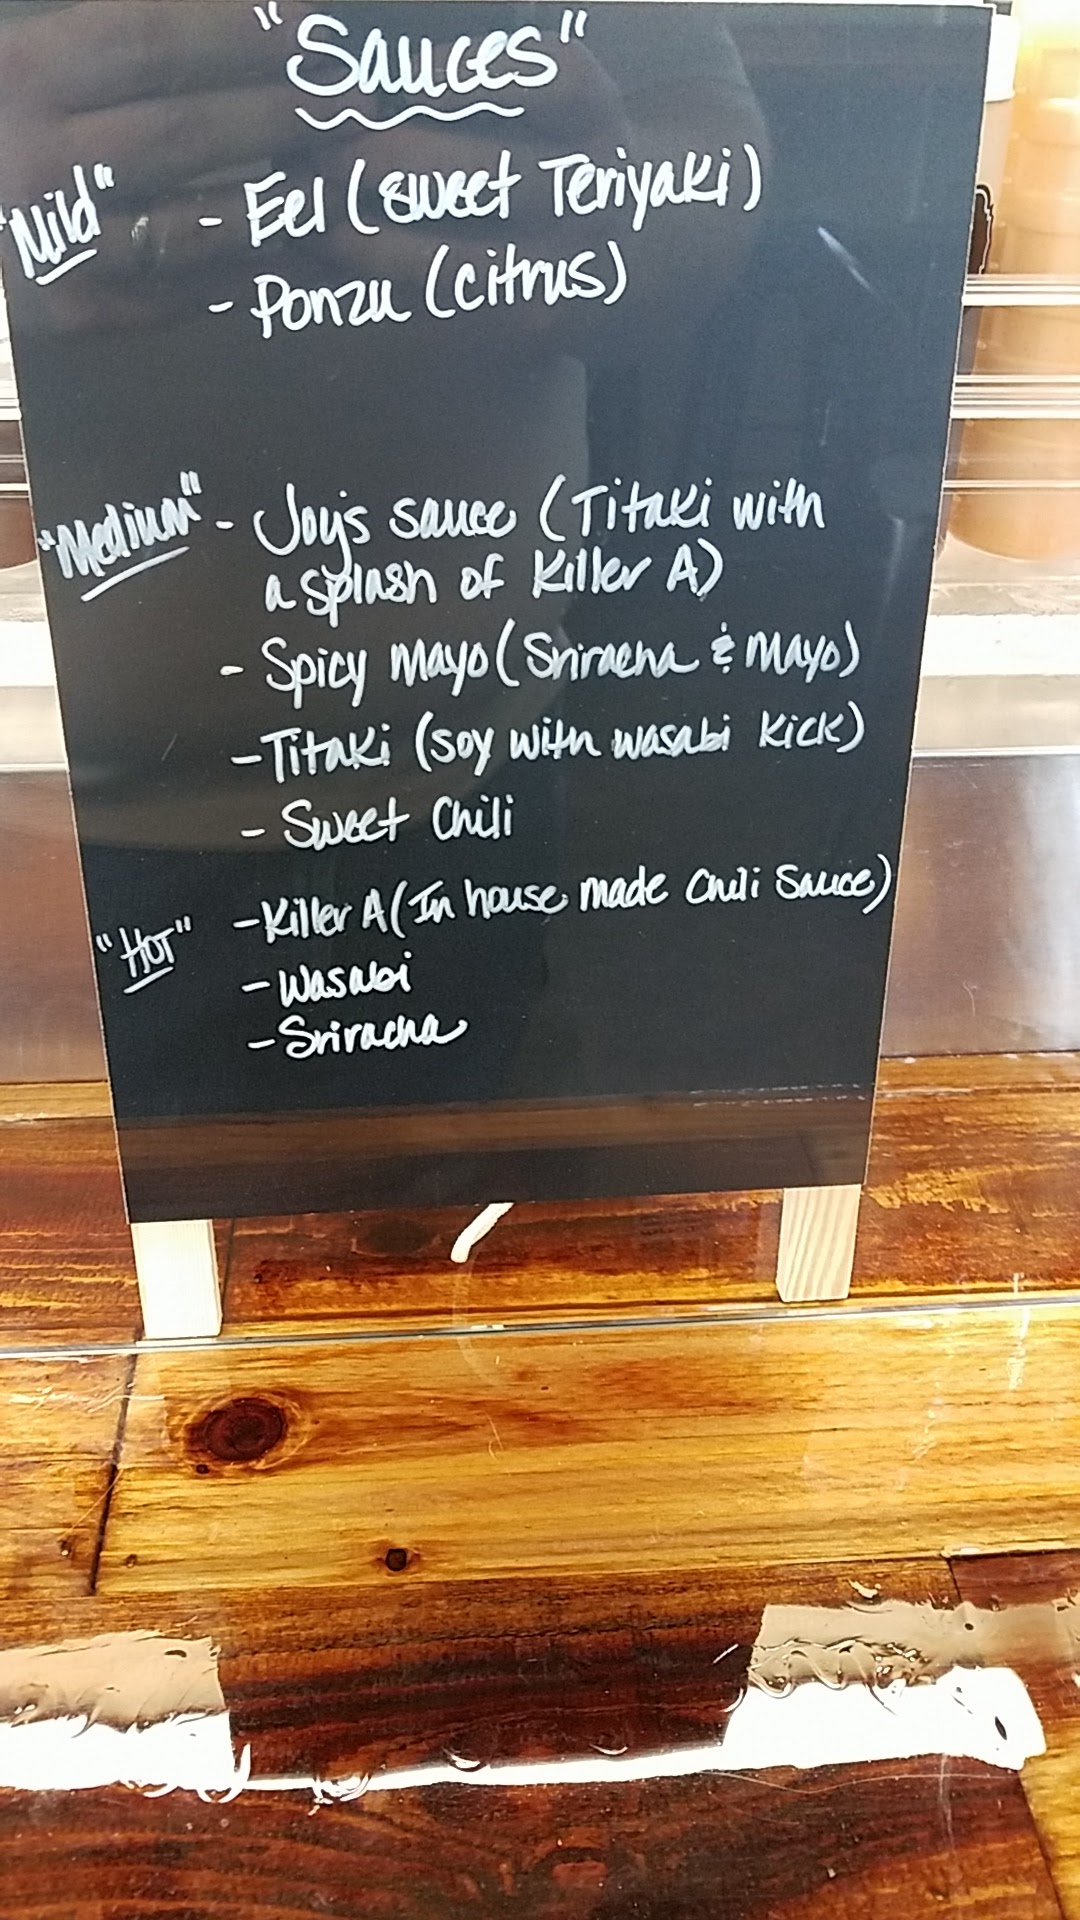 "Sauces"
"Mild" - Eel (sweet Teriyaki)
- Ponzu (citrus)
"Medium" - Joy's sauce (Titaki with
a splash of Killer A)
- Spicy Mayo (Sriracha & Mayo)
- Titaki (soy with wasabi kick)
- Sweet Chili
"Hot" - Killer A (In house made Chili Sauce)
- Wasabi
- Sriracha